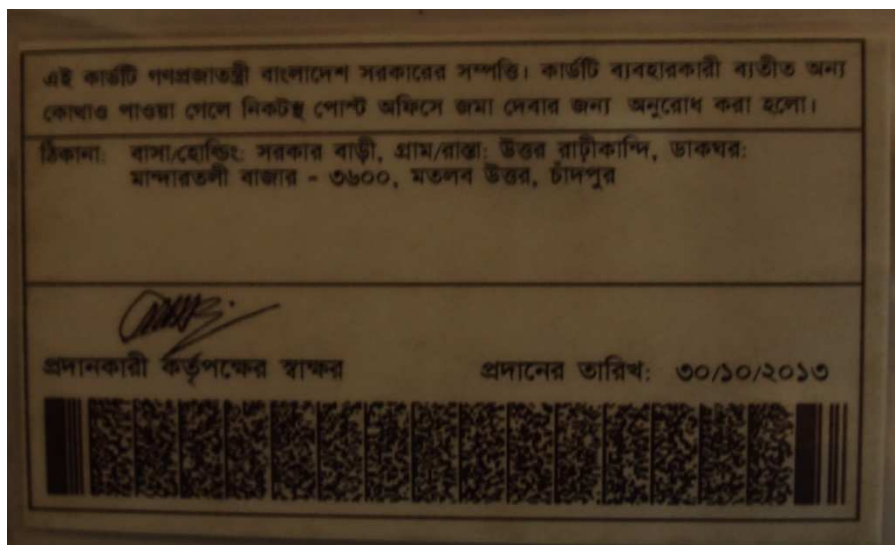 এই কার্ডটি গণপ্রজাতন্ত্রী বাংলাদেশ সরকারের সম্পত্তি। কার্ডটি ব্যবহারকারী ব্যতীত অন্য
কোথাও পাওয়া গেলে নিকটস্থ পোস্ট অফিসে জমা দেবার জন্য অনুরোধ করা হলো।
ঠিকানা: বাসা/হোল্ডিং: সরকার বাড়ী, গ্রাম/রাস্তা: উত্তর রাঢ়ীকান্দি, ডাকঘর:
মান্দারতলী বাজার - ৩৬০০, মতলব উত্তর, চাঁদপুর
প্রদানকারী কর্তৃপক্ষের স্বাক্ষর প্রদানের তারিখ: ৩০/১০/২০১৩